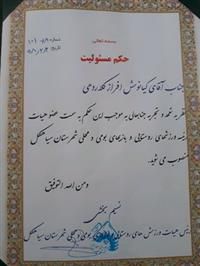 بسمه تعالی
حکم مسئولیت
جناب آقای کیانوش افراز کله رودی
نظر به تعهد و تجربه جنابعالی به موجب این حکم به سمت عضو هیات
رئیسه ورزشهای روستایی و بازیهای بومی و محلی شهرستان سیاهکل
منصوب می شوید.
ومن الله التوفیق
رئیس هیات ورزش های روستایی و بومی و محلی شهرستان سیاهکل